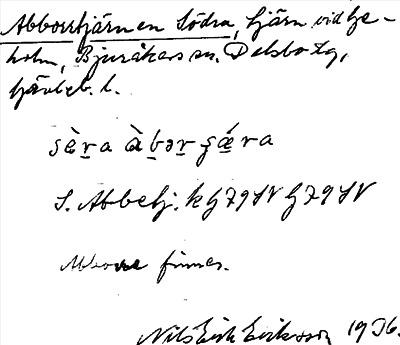 Abborrtjärnen Södra, tjärn vid Ge-
holm, Bjuråkers sn. Delsbo tg,
Gävleb. l.
sɛ̀ra àbər ʂǽra
S. Abbetj. k G79SV G79SV
Abborre finnes.
Nils Erik Eriksson 1936.